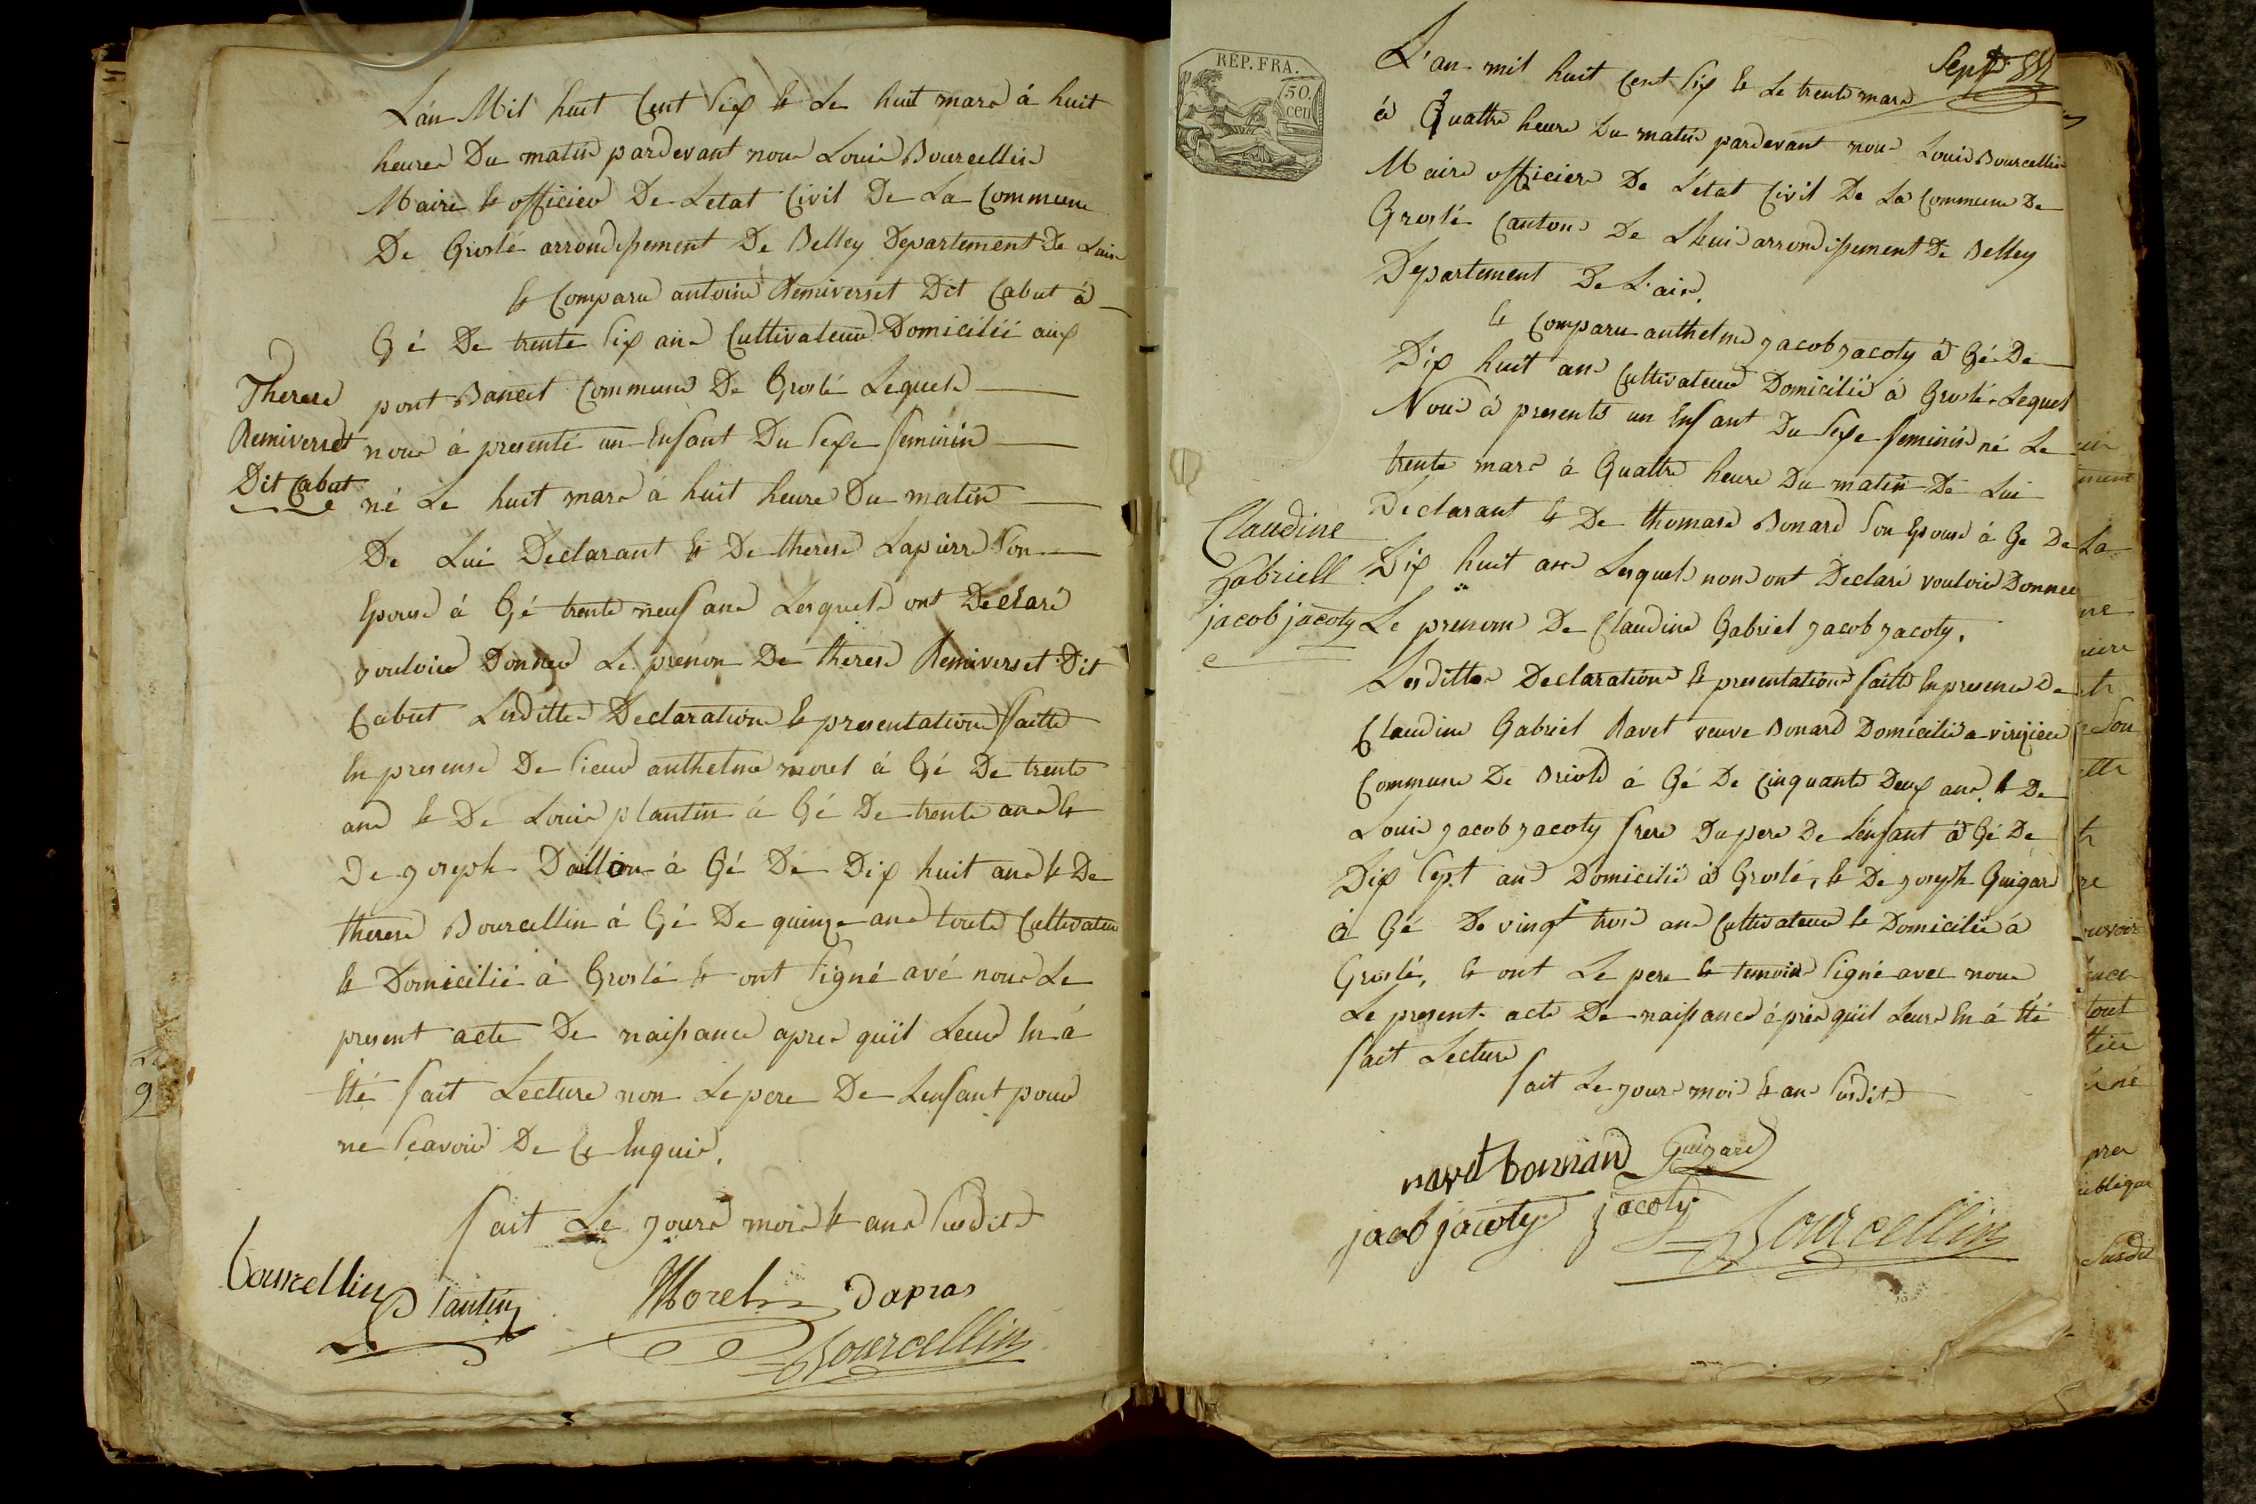 L'an Mil huit Cent Six & Le huit mars à huit
heures Du matin pardevant nous Louis Bourcellin
Maire & officier De Letat Civil De La Commune
De Groslé arrondissement De Belley Departement De Lain
& Comparu antoine Remiverset Dit Cabut à
Gé De trente Six ans Cultivateur Domicilié aux
Therese
Remiverset
Dit Cabut
pont Bancet Commune De Groslé Lequels
nous à presenté un Enfant Du Sexe feminin
né Le huit mars à huit heure Du matin
De Lui Declarant & De therese Lapierre Son
Epouse à Gé trente neuf ans Lesquels ont Declaré
vouloir Donner Le prenon De therese Remiverset Dit
Cabut Lesdittes Declaration & presentation faitte
En presense De Sieur anthelme morel à Gé De trente
ans & De Louis plantin à Gé De trente ans &
De joseph Dallion à Gé De Dix huit ans & De
therese Bourcellin à Gé De quinze ans touts Cultivateur
& Domicilié à Groslé & ont Signé avé nous Le
present acte De naissance apres quil Leur En à
Eté fait Lecture non Le pere De Lenfant pour
ne Scavoir De Ce Enquis.
fait Le jours mois & ans Susdits
bourcellin Plantin Morel Dapras
Bourcellin
REP. FRA.
50.
cen
Sept
L'an mil huit Cent Six & Le trente mars
à Quattre heure Du matin pardevant nous Louis Bourcellin
Maire officiers De L'état Civil De La Commune De
Groslé Canton De Lhuis arrondissement De Belley
Departement De L'ain.
& Comparu anthelme jacob jacoty à Gé De
Dix huit ans Cultivateur Domicilié à Groslé Lequel
Nous à presenté un Enfant Du Sexe feminin né Le
trente mars à Quattre heure Du matin De Lui
Declarant & De thomase Bonard Son Epouse à Ge De
Claudine
Gabriell
jacob jacoty
Dix huit ans Lesquels nous ont Declaré vouloir Donner
Le prenom De Claudine Gabriel jacob jacoty.
Lesdittes Declaration & presentation faitte En presence De
Claudine Gabriel Ravet veuve Bonard Domicilié a
Commune De Briord à Gé De Cinquante Deux ans, & De
Louis jacob jacoty frere Du pere De L'enfant à Gé De
Dix Sept ans Domicilié à Groslé, & De joseph Guigard
à Gé De vingt trois ans Cultivateur & Domicilié à
Groslé, & ont Le pere & temoins Signé avec nous
Le present acte De naissance après quil Leurs En á Eté
fait Lecture
fait Le jours mois & ans Susdits
ravet bonnard Guigard
jacob jacoty jacoty Bourcellin